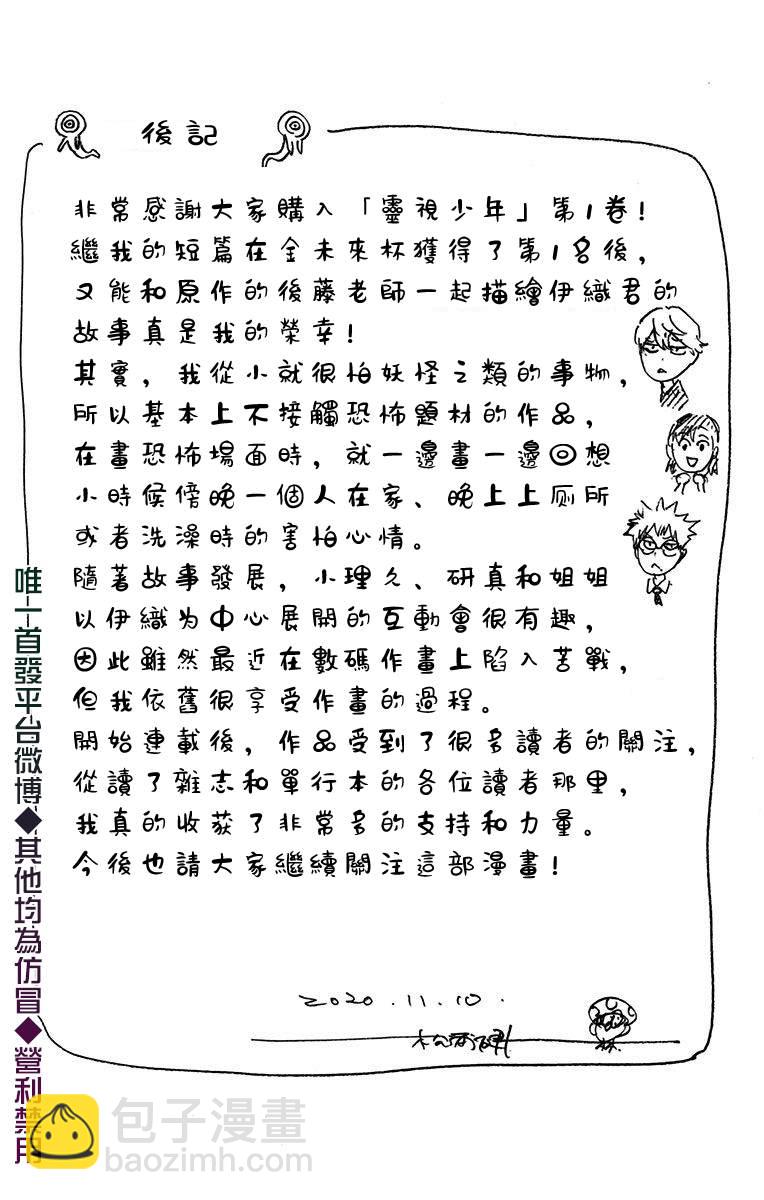 後記
非常感謝大家購入「靈視少年」第1卷!
繼我的短篇在金未來杯獲得了第1名後,
又能和原作的後藤老師一起描繪伊織君的
故事真是我的榮幸!
其實,我從小就很怕妖怪之類的事物,
所以基本上不接觸恐怖題材的作品,
在畫恐怖場面時,就一邊畫一邊回想
小時候傍晚一個人在家、晚上上厕所
或者洗澡時的害怕心情。
隨著故事發展,小理久、研真和姐姐
以伊織為中心展開的互動會很有趣,
因此雖然最近在數碼作畫上陷入苦戰,
但我依舊很享受作畫的過程。
開始連載後,作品受到了很多讀者的關注,
從讀了雜志和單行本的各位讀者那里,
我真的收获了非常多的支持和力量。
今後也請大家繼續關注這部漫畫!
2020.11.10.
唯一首發平台微博◆其他均為仿冒◆營利禁用
包子漫畫
baozimh.com